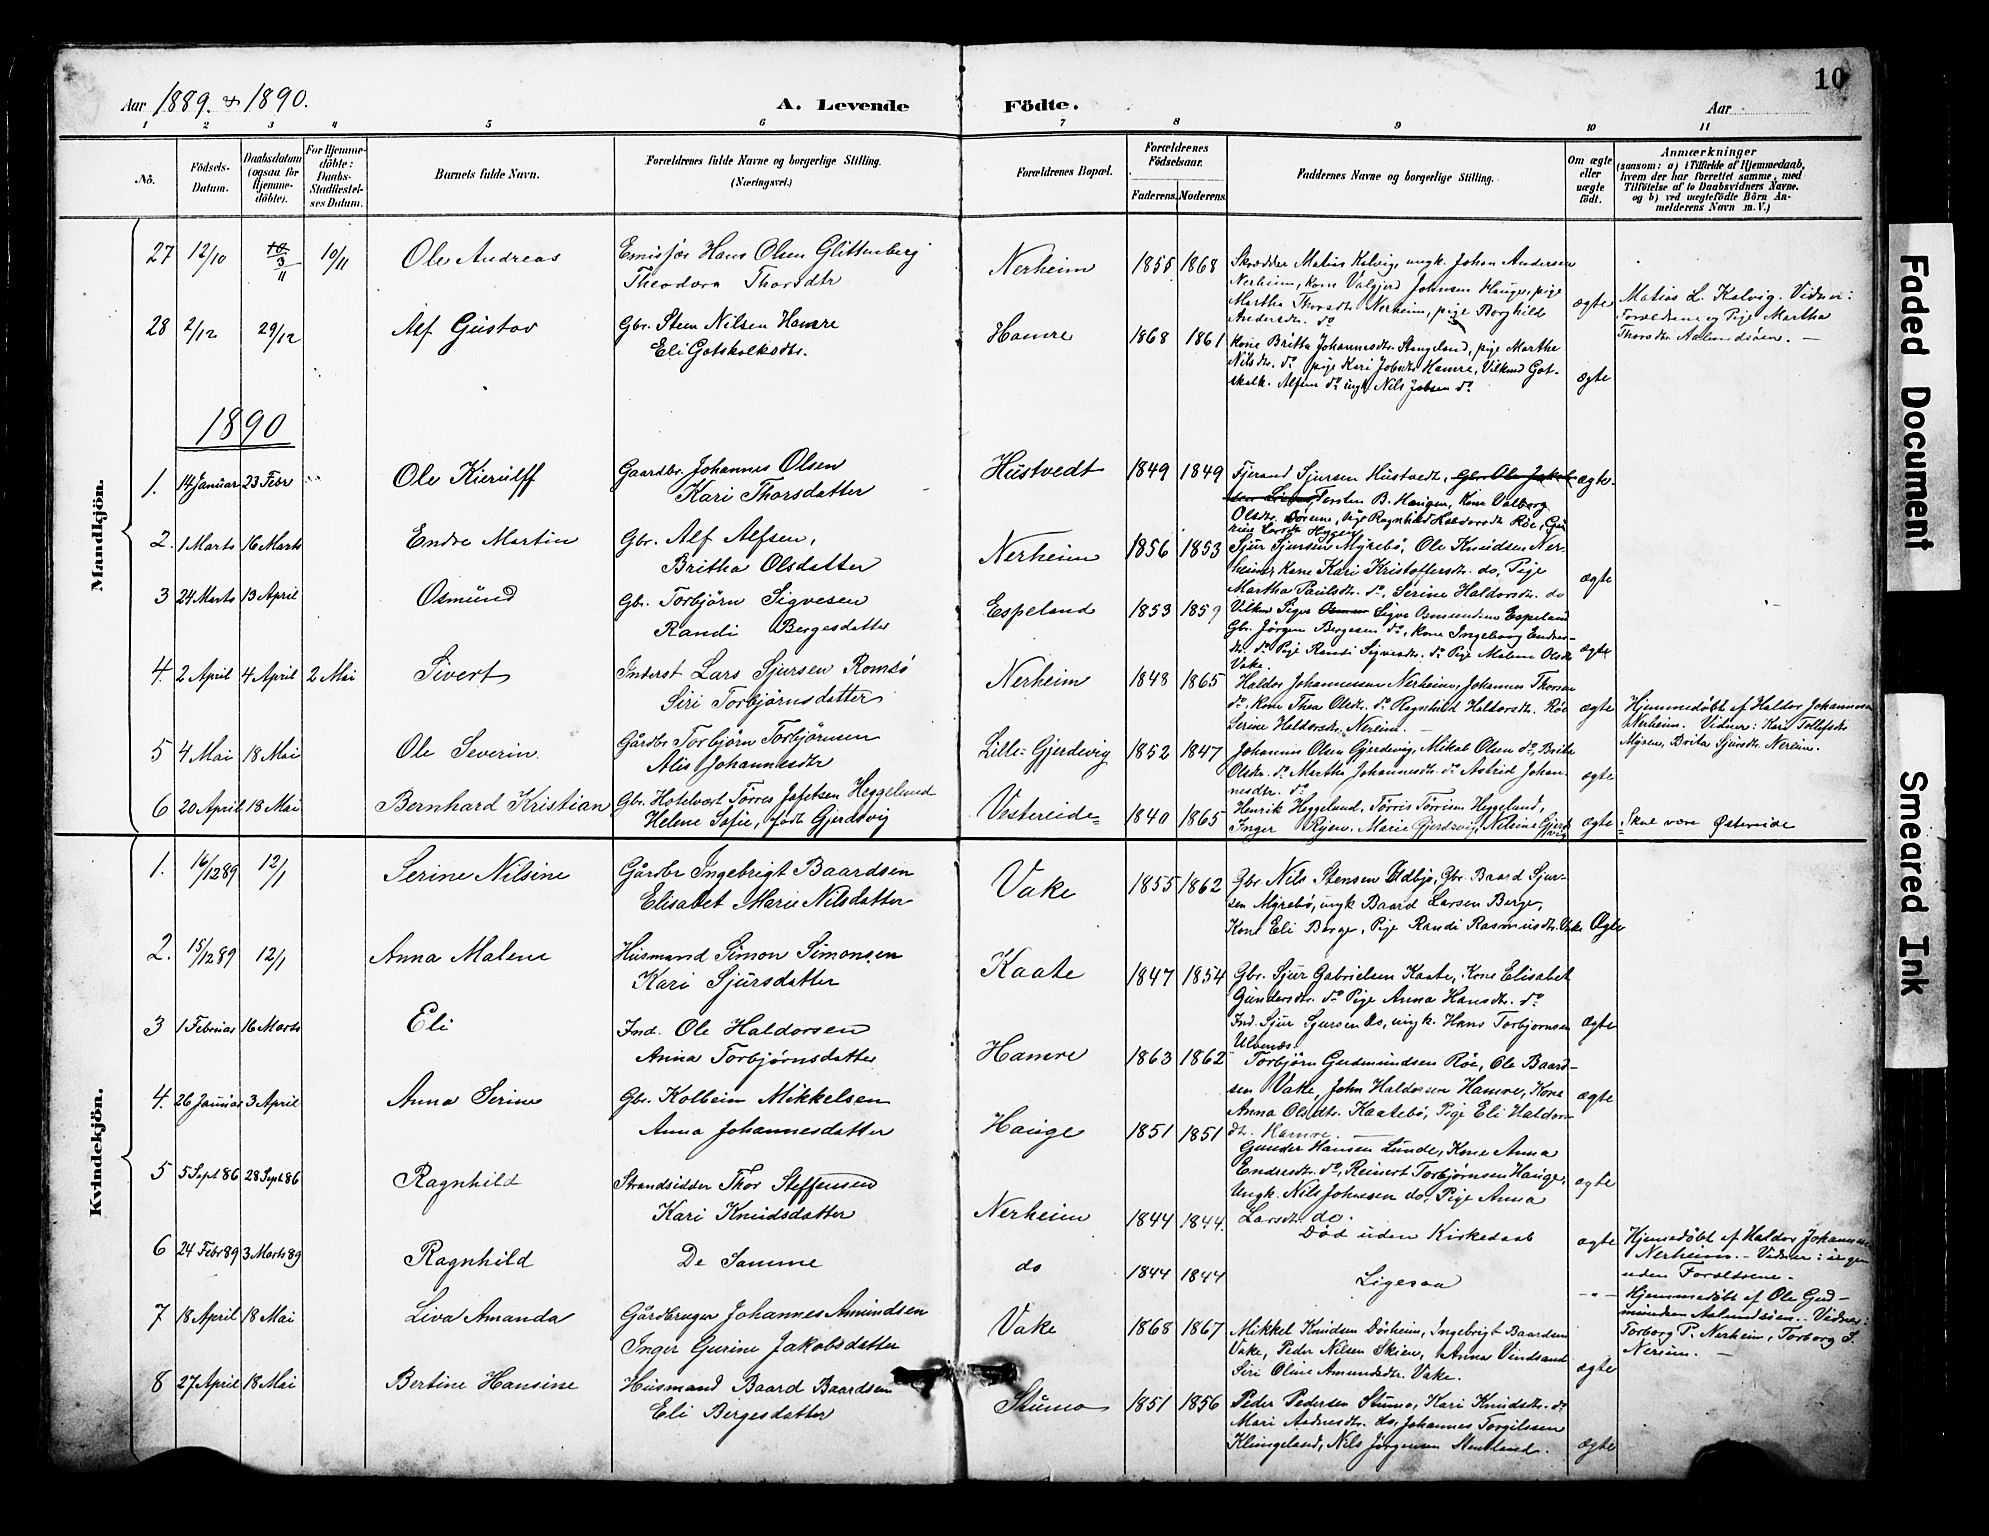 10
Aar 1889. & 1890.
A. Levende Födte.
Aar
1 2 3 4 5 6 7 8 9 10 11
No.
Födsels-Datum.
Daabsdatum (ogsaa for Hjemme-döbte).
For Hjemme-döbte: Daabs-Stadfæstel-ses Datum.
Barnets fulde Navn.
Forældrenes fulde Navne og borgerlige Stilling. (Næringsvei.)
Forældrenes Bopæl.
Forældrenes Födselsaar.
Faderens. Moderens.
Faddernes Navne og borgerlige Stilling.
Om ægte eller uægte født.
Anmærkninger
(saasom: a) i Tilfælde af Hjemmedaab, hvem der har forrettet samme, med Tilföielse af to Daabsvidners Navne. og b) ved uægtefödte Börn An-melderens Navn m. V.)
Mandkjön.
27 12/10 10/11 Ole Andreas
Emisjær Hans Olsen Glittenberg
Theodora Thorsdtr
Nerheim 1855 1868
Skrædder Matias Kalvig, ungk. Johan Andersen
Nerheim, Kone Valgjerd Johnsen Hauge, pige
Martha Thorsdt. Nerheim, pige Borghild
Andersdtr. do
ægte
Matias L. Kalvig. Vidner:
Forældrene og Pige Martha
Thorsdtr
28 2/12 29/12 Alf Gustav
Gbr. Sten Nilsen Hamre
Eli Gotskalksdtr.
Hamre 1868 1861
Kone Britta Johannesdtr. Stangeland, pige Marthe
Nilsdtr. do pige Kari Jobsdtr Hamre, Vilkmd Got-
skalk. Alfsen do ungk. Nils Jobsen do
ægte
1890
1. 14 Januar 23 Febr Ole Kierulff
Gaardbr. Johannes Olsen
Kari Thorsdatter
Hustvedt 1849 1849
Fjerand Sjursen Hustvedt, Gbr. Ole Jakob-
Torsten B. Haugen, Kone Valborg
Olsdtr. Pige Ragnhild Haldorsdt. Röe,
ægte.
2. 1 Marts 16 Marts Endre Martin
Gbr. Alf Alfsen,
Britha Olsdatter
Nerheim 1856 1853
Sjur Sjursen Myrebö, Ole Knudsen Ner-
heim, Kone Kari Kristoffersdtr. do, Pige
Martha Paulsdtr. do, Serine Haldorsdtr. do
ægte
3 24 Marts 13 April Osmund
Gbr. Torbjörn Sigvesen
Randi Bergesdatter
Espeland 1853 1859
Sigve Osmundsen Espeland
Gbr. Jørgen Bergesen do, Kone Ingeborg Endres-
dtr. do Pige Randi Sigvesdtr. do Pige Malene Olsdtr
Vake.
ægte
4. 2 April 4 April 2 Mai Sivert
Inderst Lars Sjursen Romsö
Siri Torbjørnsdatter
Nerheim 1848 1865
Haldor Johannessen Nerheim, Johannes Thorsen
do, Kone Thea Olsdtr. do Ragnhild Haldorsdt. Röe
Serine Haldorsdtr. Nereim.
ægte
Hjemmedöbt af Haldor Johannesen
Nerheim. Vidner: Kari Tollefsdtr
Myren, Brita Sjursdtr. Nereim.
5 4 Mai 18 Mai Ole Severin.
Gårdbr Torbjörn Torbjörnsen
Alis Johannesdtr
Lille-Gjerdevig 1852 1847
Johannes Olsen Gjerdevig, Mikal Olsen do, Brita
Olsdtr. do Martha Johannesdtr. do Astrid Johan
nesdtr. do
ægte
6 20 April 18 Mai Bernhard Kristian
Gbr. Hotelvært Torres Jafetsen Heggelund
Helene Sofie, født Gjerdevig
Vestereide 1840 1865
Henrik Heggelund, Torris Törrisen Heggelund,
Inger Rejen. Marie Gjerdevig, Nilsine Gjerde
vig
ægte
Skal være Østereide
Kvindekjön.
1. 16/12 89 12/1 Serine Nilsine
Gårdbr Ingebrigt Baardsen
Elisabet Marie Nilsdatter
Vake 1855 1862
Gbr Nils Stensen Udbjo, Gbr. Baard Sjur-
sen Myrebö, ungk Baard Larsen Berge,
Kone Eli Berge, Pige Randi Rasmusdtr. Vake
Ægte
2. 15/12 89 12/1 Anna Malene
Husmand Simon Simonsen
Kari Sjursdatter
Kaate 1847 1854
Gbr. Sjur Gabrielsen Kaate, Kone Elisabet
Gundersdtr. do Pige Anna Hansdtr. do
Ind. Sjur Sjursen do, ungk. Hans Torbjørnsen
Ulvenæs.
ægte
3 1 Februar 16 Marts Eli
Ind. Ole Haldorsen
Anna Torbjørnsdatter
Hamre 1863 1862
Torbjörn Gudmundsen Röe, Ole Baard-
sen Vake, John Haldorsen Hamre, Kone
Anna Olsdtr. Kaatebö, Pige Eli Haldors
dt. Hamre.
ægte
4. 26 Januar 3 April Anna Serine
Gbr. Kolbein Mikkelsen
Anna Johannesdatter
Hauge 1851 1851
Gunder Hansen Lunde, Kone Anna
Endresdtr. do, Reinert Torbjørnsen Hauge,
Ungk. Nils Johnsen do, Pige Anna
Larsdtr do.
ægte
5 5 Sept 86 28 Sept 86 Ragnhild
Strandsidder Thor Steffensen
Kari Knudsdatter
Nerheim 1844 1844.
Död uden Kirkedaab
ægte
Hjemmedöbt af Haldor Johannesen
Nerheim. - Vidner: ingen
uden Forældrene.
6 24 Febr 89 3 Marts 89 Ragnhild
De Samme
do 1844 1844
Ligesaa
- " -
Hjemmedöbt af Ole Gud-
mundsen Vidner:
Torborg P. Nerheim, Torborg S.
Nereim.
7 18 April 18 Mai Liva Amanda
Gårdbruger Johannes Amundsen
Inger Gurine Jakobsdatter
Vake 1868 1867
Mikkel Knudsen Dörheim, Ingebrigt Baardsen
Vake, Peder Nilsen Skien, Anna Vindsand
Siri Oline Amundsdtr. Vake.
ægte
8 27 April 18 Mai Bertine Hansine
Husmand Baard Baardsen
Eli Bergesdatter
Stumo 1851 1856
Peder Pedersen Stumo, Kari Knudsdtr. do
Mari Aadnesdtr. do, Johannes Torgilssen
Klungeland, Nils Jørgensen
ægte
Faded Document
Smeared Ink